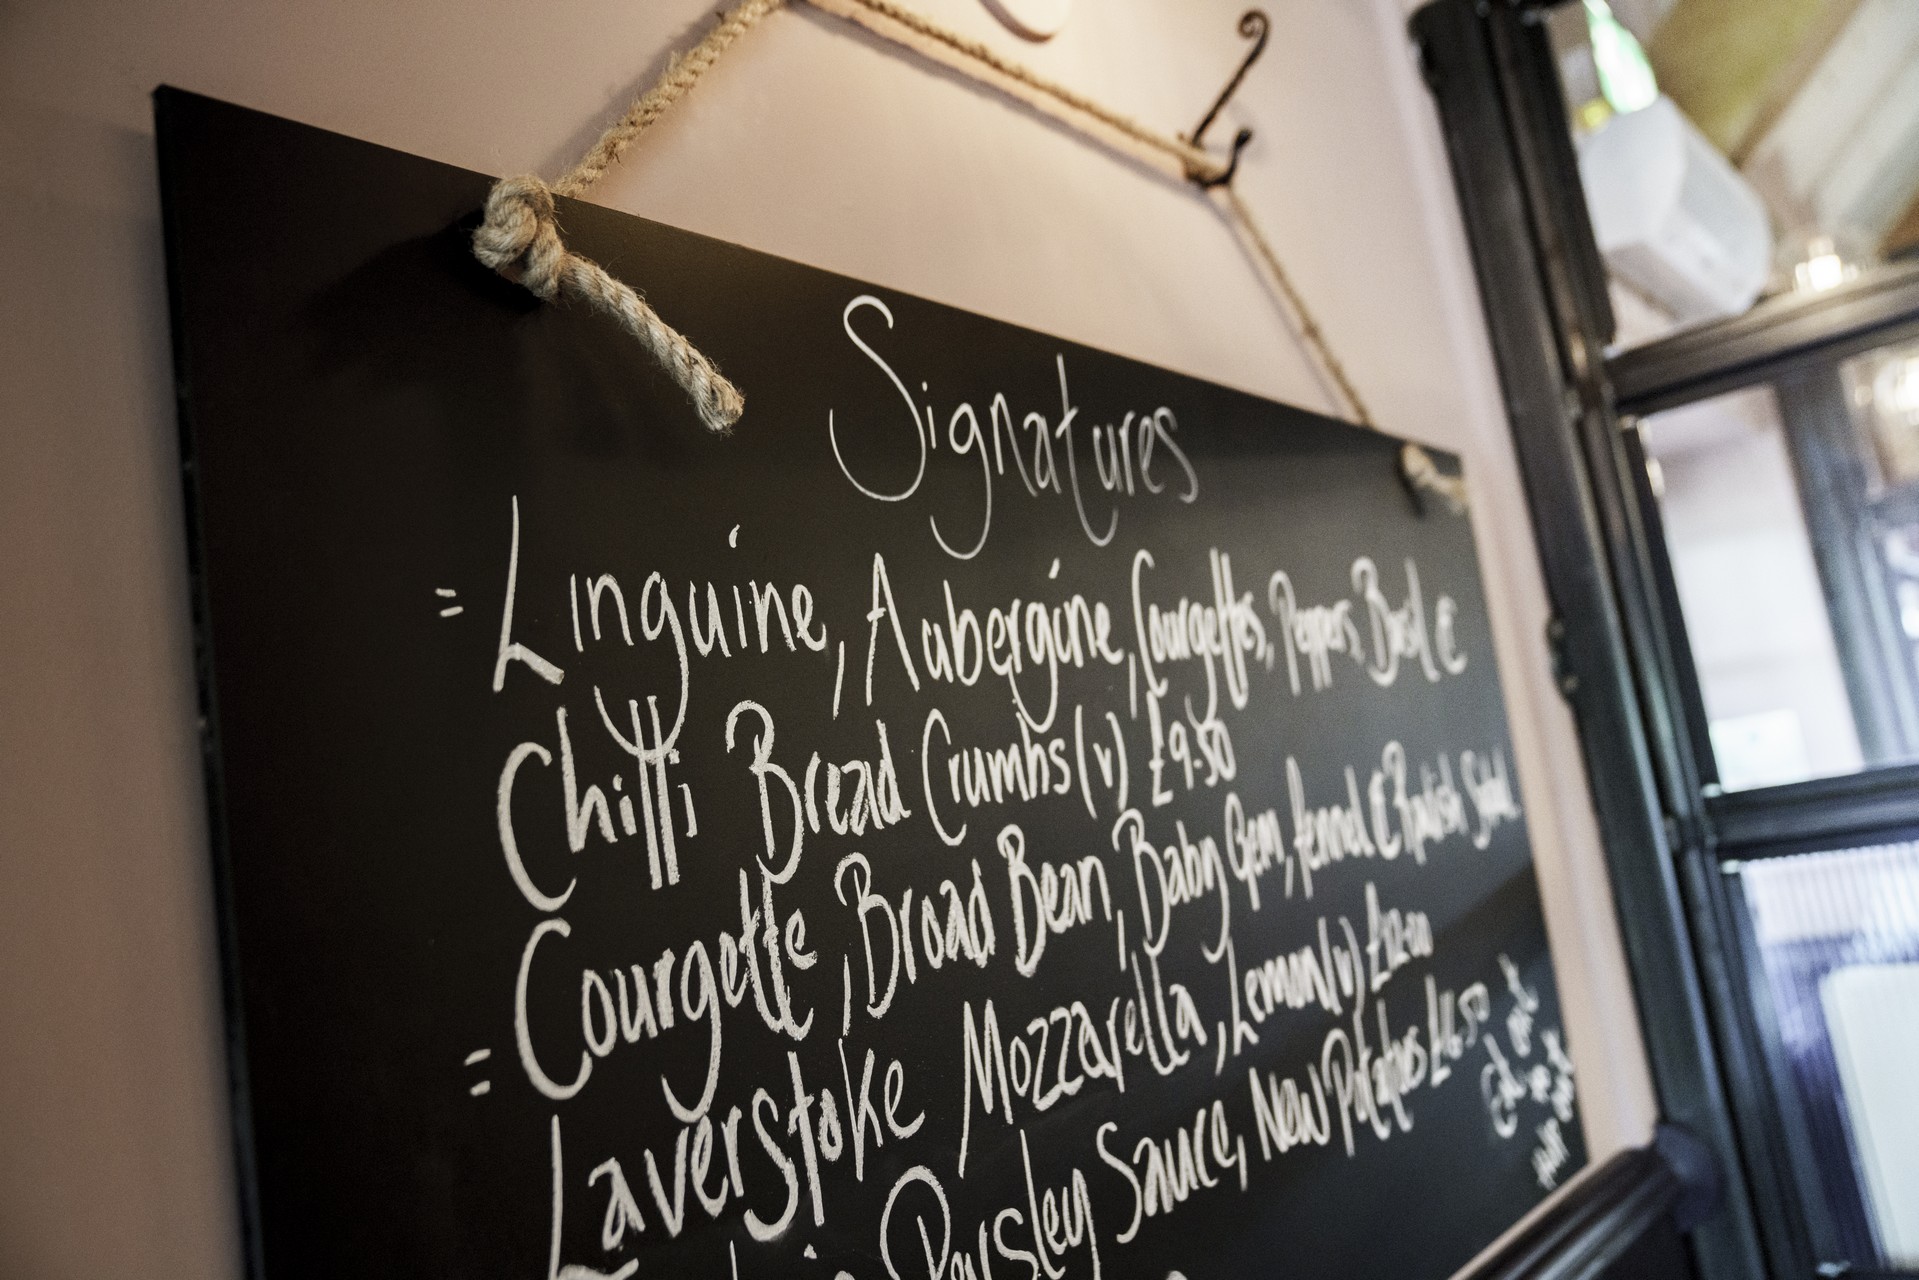 Signatures
= Linguine, Aubergine, Courgettes, Peppers, Basil &
Chilli Bread Crumbs (v) £9.50
Courgette, Broad Bean, Baby Gem, fennel & Radish Salad.
= Laverstoke Mozzarella, Lemon (v) £12.00
Parsley Sauce, New Potatoes £16.50